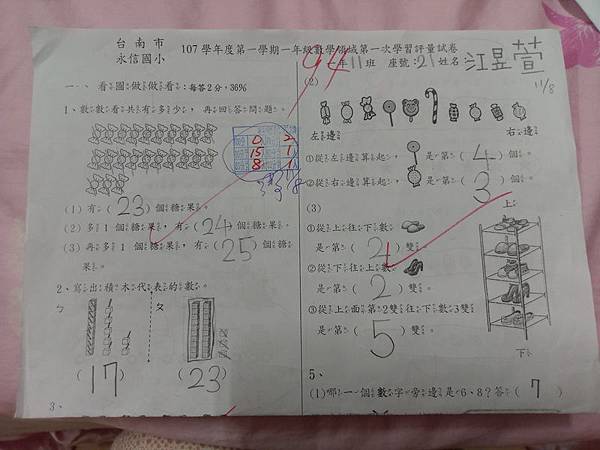 台南市
永信國小
107學年度第一學期一年級數學領域第一次學習評量試卷
一年11班 座號:21姓名 江昱萱
94
11/8
一、看圖做做看:每答2分,36%
1、數數看共有多少,再回答問題。
0 2
15 1
8 1
(1)有(23)個糖果。
(2)多1個糖果,有(24)個糖果。
(3)再多1個糖果,有(25)個糖
果。
2、寫出積木代表的數。
ㄅ ㄆ
(17) (23)
3、
(2)
左邊 右邊
①從左邊算起, 是第(4)個。
②從右邊算起, 是第(3)個。
(3)
上
①從上往下數
是第(2)雙。
②從下往上數
是第(2)雙。
③從上面第2雙往下數3雙
是第(5)雙。
下
5、
(1)哪一個數字旁邊是6、8?答(7)